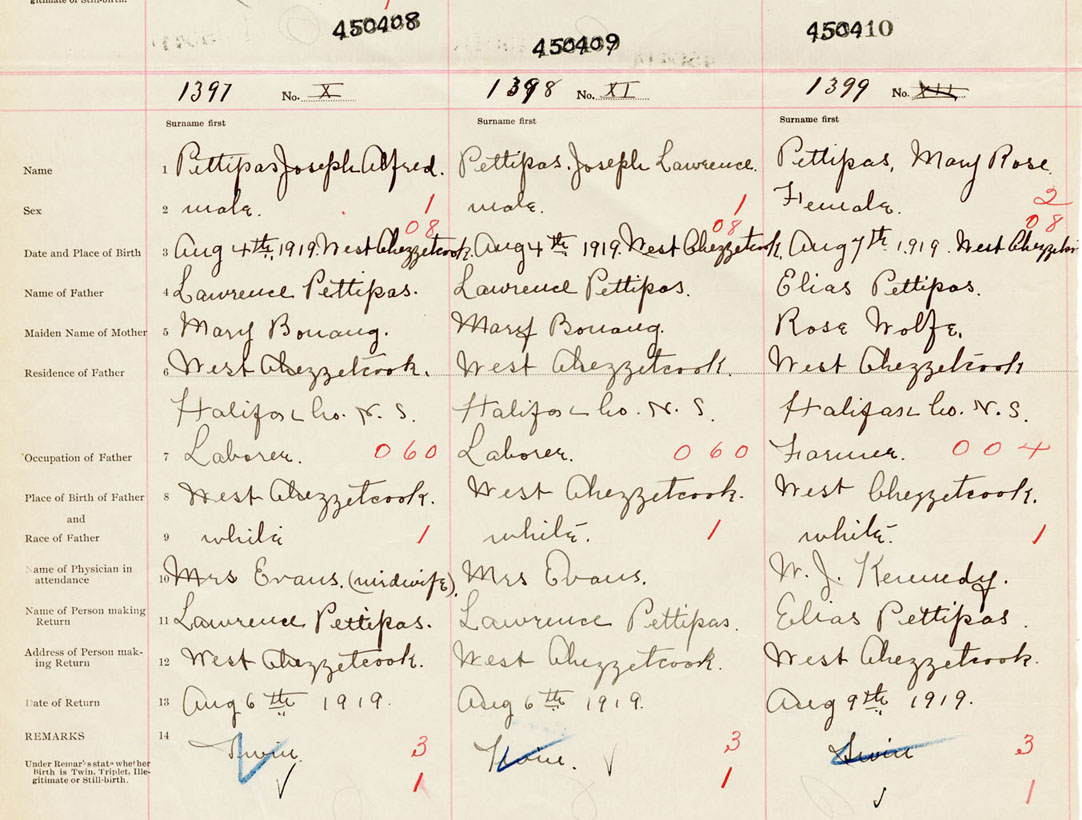 gitimate or Still-birth.
450408 450409 450410
1397 No. X 1398 No. XI 1399 No. XII
Surname first Surname first Surname first
Name 1 Pettipas Joseph Alfred. Pettipas. Joseph Lawrence. Pettipas, Mary Rose.
Sex 2 male. 1 male. 1 Female. 2
08 08 08
Date and Place of Birth 3 Aug 4th, 1919. West Chezzetcook. Aug 4th 1919. West Chezzetcook, Aug 7th. 1919. West
Name of Father 4 Lawrence Pettipas. Lawrence Pettipas. Elias Pettipas.
Maiden Name of Mother 5 Mary Bonang. Mary Bonang. Rose Wolfe.
Residence of Father 6 West Chezzetcook. West Chezzetcook. West Chezzetcook
Halifax Co. N.S. Halifax Co. N.S. Halifax Co. N.S.
Occupation of Father 7 Laborer. 060 Laborer. 060 Farmer. 004
Place of Birth of Father 8 West Chezzetcook. West Chezzetcook. West Chezzetcook.
and
Race of Father 9 white 1 white. 1 white. 1
Name of Physician in
attendance 10 Mrs Evans. (midwife), Mrs Evans. W. J. Kennedy.
Name of Person making
Return 11 Lawrence Pettipas. Lawrence Pettipas. Elias Pettipas.
Address of Person mak-
ing Return 12 West Chezzetcook. West Chezzetcook. West Chezzetcook.
Date of Return 13 Aug 6th 1919. Aug 6th 1919. Aug 9th 1919.
REMARKS 14 Twin. 3 Twin. 3 Twin 3
Under Remarks state whether
Birth is Twin, Triplet, Ille-
gitimate or Still-birth. 1 1 1